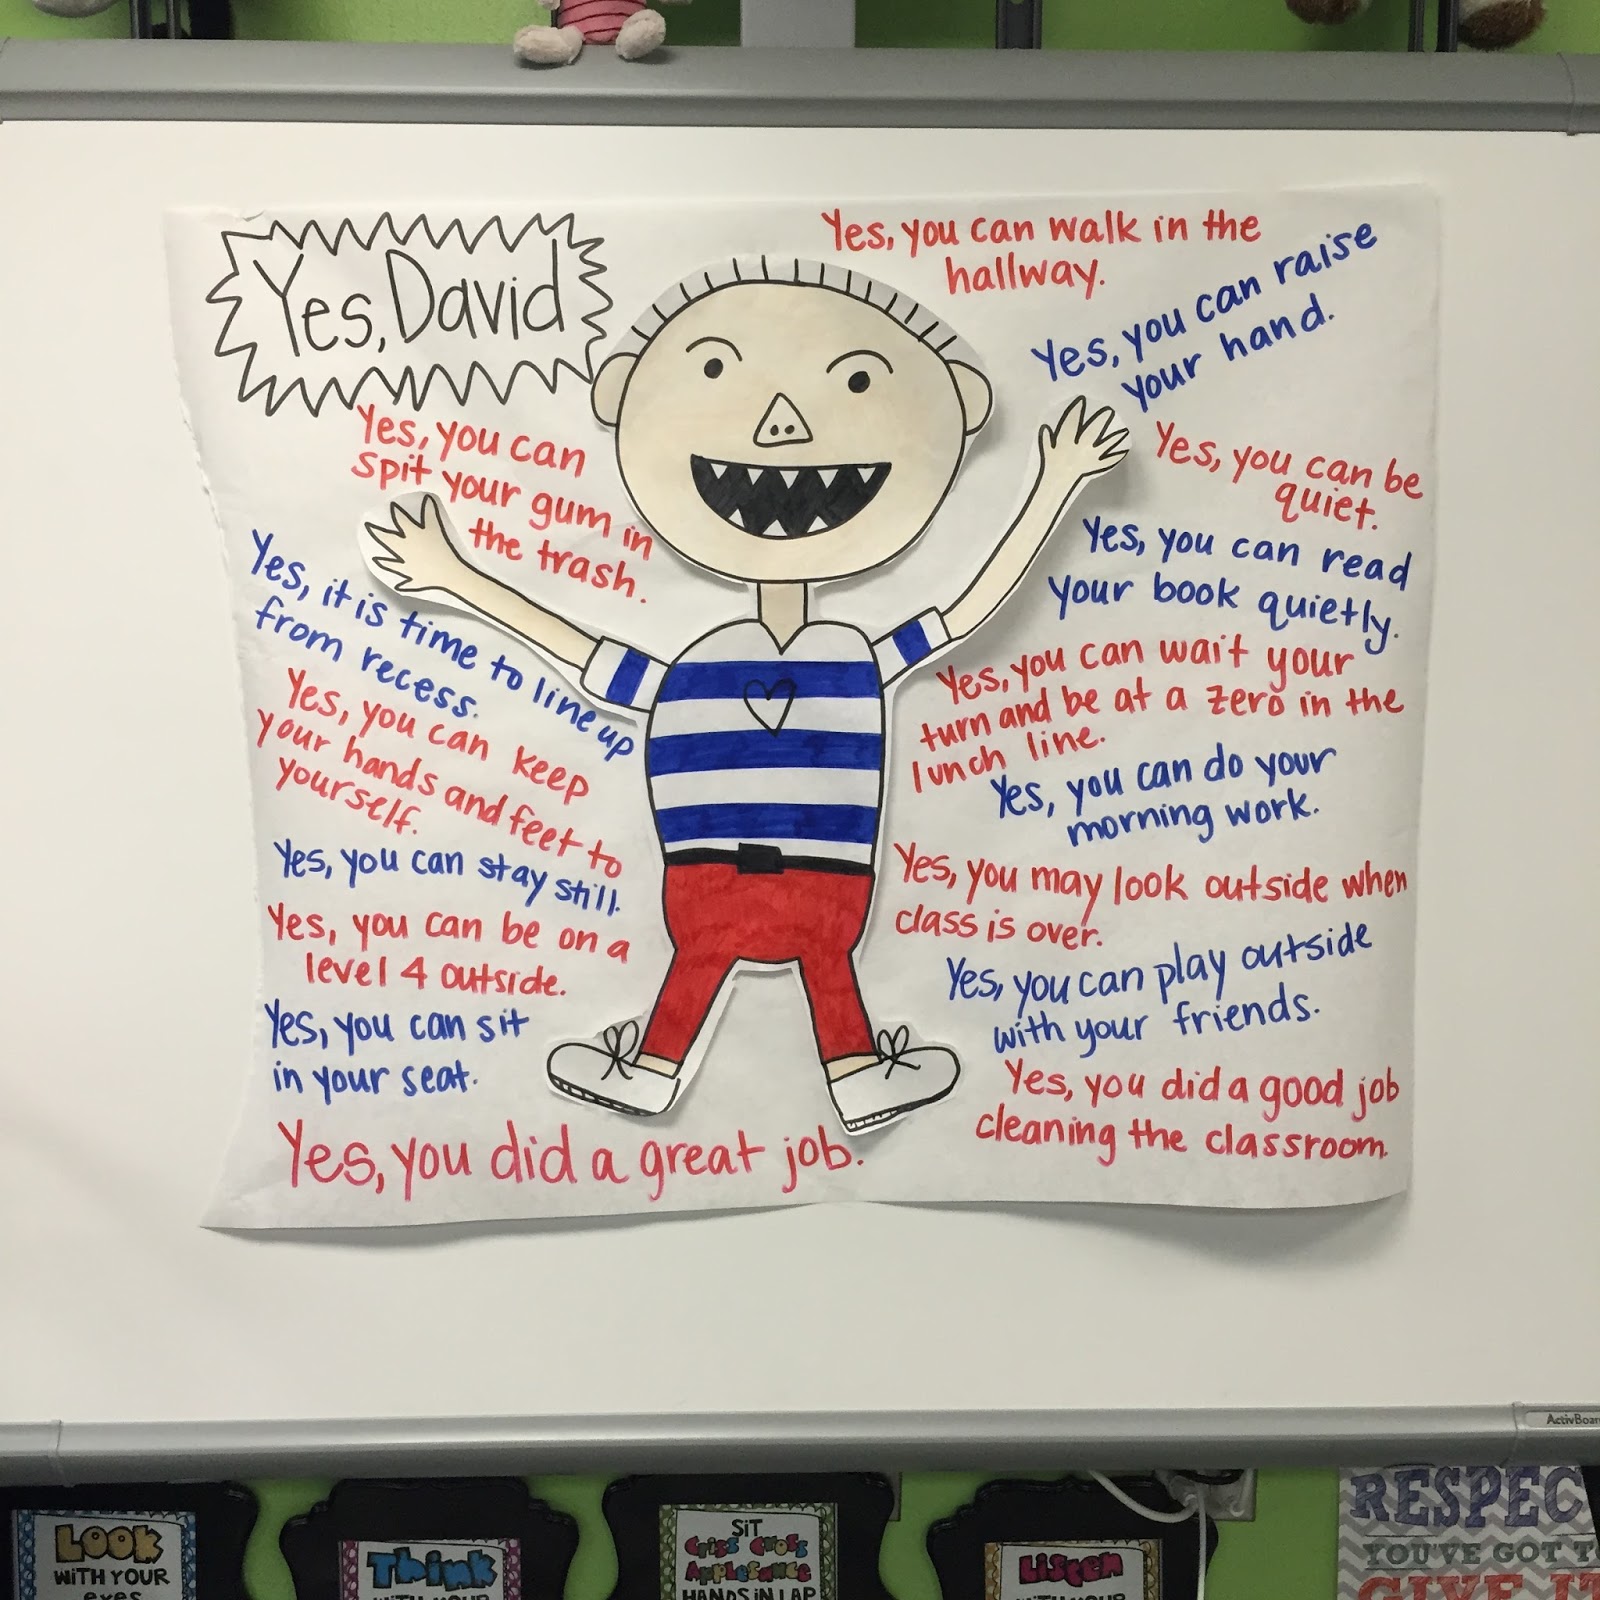 Yes, David
Yes, you can
spit your gum in
the trash.
Yes, it is time to line up
from recess.
Yes, you can keep
your hands and feet to
yourself.
Yes, you can stay still.
Yes, you can be on a
level 4 outside.
Yes, you can sit
in your seat.
Yes, you did a great job.
Yes, you can walk in the
hallway.
Yes, you can raise
your hand.
Yes, you can be
quiet.
Yes, you can read
your book quietly.
Yes, you can wait your
turn and be at a zero in the
lunch line.
Yes, you can do your
morning work.
Yes, you may look outside when
class is over.
Yes, you can play outside
with your friends.
Yes, you did a good job
cleaning the classroom.
ActivBoar
LOOK
WITH YOUR
eyes
Think
WITH YOUR
SIT
CRISS CROSS
Applesauce
HANDS IN LAP
Listen
WITH YOUR
RESPEC
YOU'VE GOT T
GIVE IT